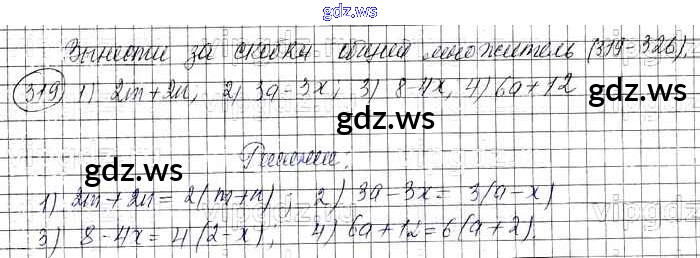 gdz.ws
gdz.ws
Вынести за скобки общий множитель (319-326).
319) 1) 2m+2n; 2) 3a-3x; 3) 8-4x, 4) 6a+12
gdz.ws
gdz.ws
Решение.
gdz.ws
1) 2m+2n=2(m+n); 2) 3a-3x=3(a-x)
3) 8-4x=4(2-x); 4) 6a+12=6(a+2).
gdz.ws
gdz.ws